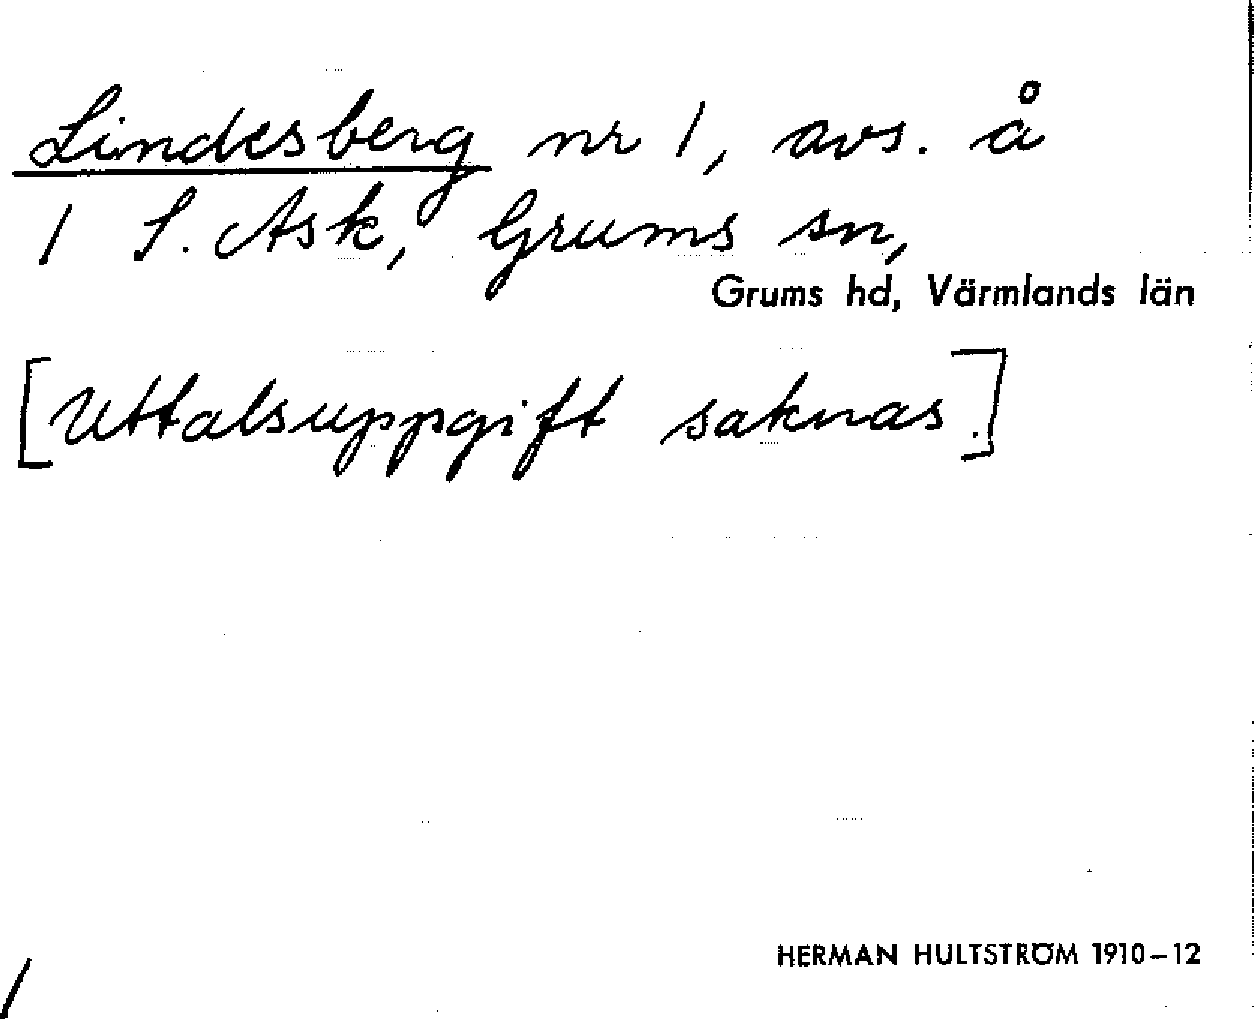 Lindesberg nr 1, avs. å
1 S. Ask, Grums sn,
Grums hd, Värmlands län
[Uttalsuppgift saknas.]
HERMAN HULTSTRÖM 1910-12